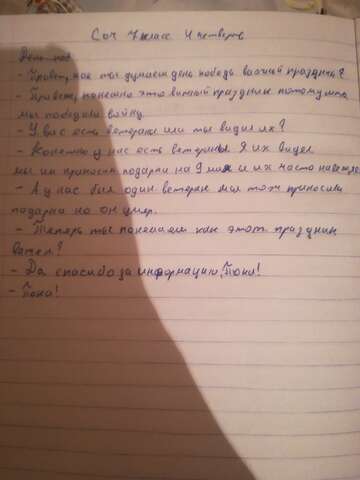 Соч 7 класс 4 четверть
День поб
- Привет, как ты думаеш день победы важный праздник?
- Привет, конешно это важный праздник потому что
мы победили войну
- У вас есть ветераны или ты видил их?
- Конечно у нас есть ветераны. Я их видел
мы им приносим подарки на 9 мая и их часто навещаем
- А у нас был один ветеран мы тож приносили
подарки но он умер.
- Теперь ты понемаеш как этот праздник
важен?
- Да спасибо за информацию, Пока!
- Пока!